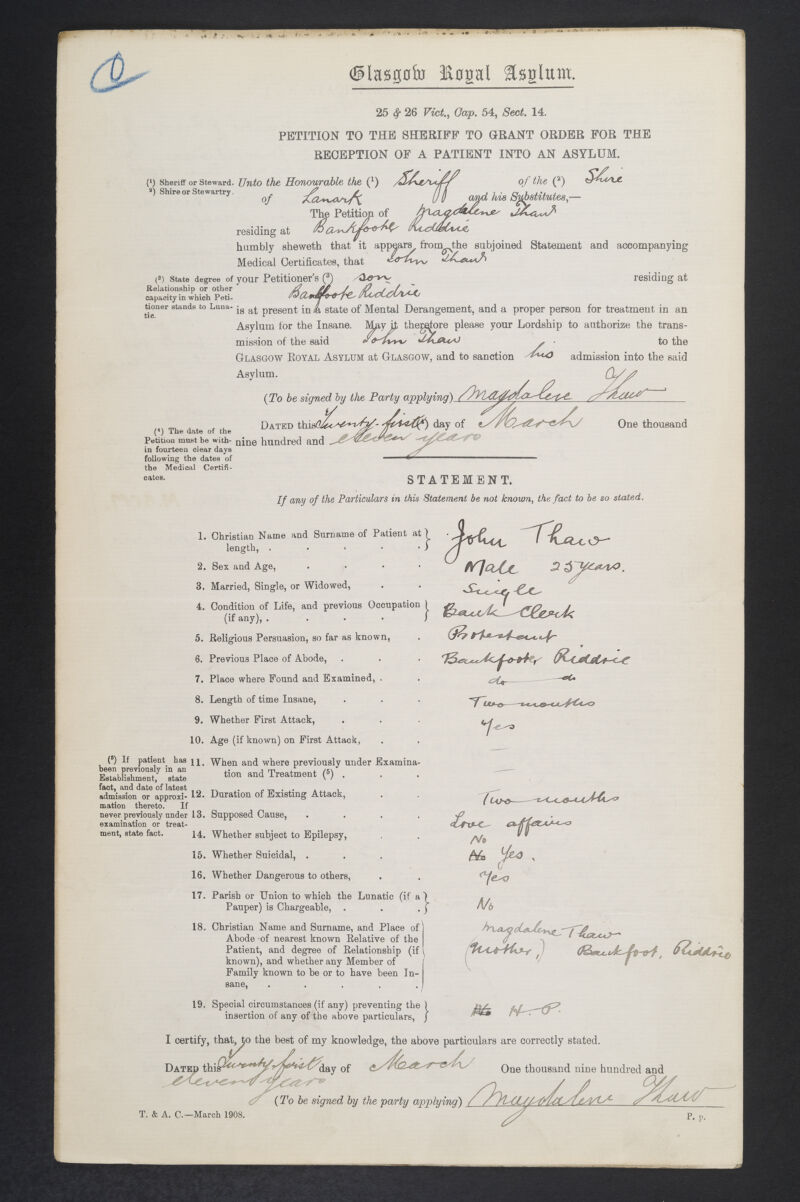 Glasgow Royal Asylum.
25 & 26 Vict., Cap. 54, Sect. 14.
PETITION TO THE SHERIFF TO GRANT ORDER FOR THE
RECEPTION OF A PATIENT INTO AN ASYLUM.
(¹) Sheriff or Steward.
²) Shire or Stewartry.
Unto the Honourable the (¹) Sheriff of the (²) Shire
of Lanark and his Substitutes,—
The Petition of Magdalene Thaw
residing at Bankfoote Riddrie
humbly sheweth that it appears from the subjoined Statement and accompanying
Medical Certificates, that John Thaw
(³) State degree of
Relationship or other
capacity in which Peti-
tioner stands to Luna-
tic.
your Petitioner's (³) son residing at
Bankfoote Riddrie
is at present in a state of Mental Derangement, and a proper person for treatment in an
Asylum for the Insane. May it therefore please your Lordship to authorize the trans-
mission of the said John Thaw to the
GLASGOW ROYAL ASYLUM AT GLASGOW, and to sanction his admission into the said
Asylum.
(To be signed by the Party applying) Magdalene Thaw
(⁴) The date of the
Petition must be with-
in fourteen clear days
following the dates of
the Medical Certifi-
cates.
DATED this Twenty-first (⁴) day of March One thousand
nine hundred and eleven years
STATEMENT.
If any of the Particulars in this Statement be not known, the fact to be so stated.
1. Christian Name and Surname of Patient at
length, . . . . . John Thaw
2. Sex and Age, . . . . Male 25 years.
3. Married, Single, or Widowed, . . Single
4. Condition of Life, and previous Occupation
(if any), . . . . . Bank Clerk
5. Religious Persuasion, so far as known, . Protestant
6. Previous Place of Abode, . . . Bankfoote Riddrie
7. Place where Found and Examined, . . do do
8. Length of time Insane, . . . Two months
9. Whether First Attack, . . . Yes
10. Age (if known) on First Attack, . . —
(⁵) If patient has
been previously in an
Establishment, state
fact, and date of latest
admission or approxi-
mation thereto. If
never previously under
examination or treat-
ment, state fact.
11. When and where previously under Examina-
tion and Treatment (⁵) . . . —
12. Duration of Existing Attack, . . Two months
13. Supposed Cause, . . . . Love affairs
14. Whether subject to Epilepsy, . . No
15. Whether Suicidal, . . . . No Yes.
16. Whether Dangerous to others, . . Yes
17. Parish or Union to which the Lunatic (if a
Pauper) is Chargeable, . . . No
18. Christian Name and Surname, and Place of
Abode of nearest known Relative of the
Patient, and degree of Relationship (if
known), and whether any Member of
Family known to be or to have been In-
sane, . . . . .
Magdalene Thaw
(Mother,) Bankfoot, Riddrie
19. Special circumstances (if any) preventing the
insertion of any of the above particulars, No H.P.
I certify, that, to the best of my knowledge, the above particulars are correctly stated.
DATED this Twenty-first day of March One thousand nine hundred and
eleven years
(To be signed by the party applying) Magdalene Thaw
T. & A. C.—March 1908.
P. p.